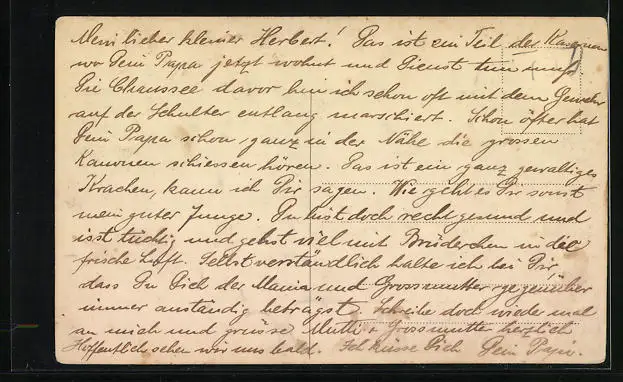 Mein lieber kleiner Herbert! Das ist ein Teil der Kasernen
wo Dein Papa jetzt wohnt und Dienst tun muß.
Die Chaussee davor bin ich schon oft mit dem Gewehr
auf der Schulter entlang marschiert. Schon öfter hat
Dein Papa schon, ganz in der Nähe die grossen
Kanonen schiessen hören. Das ist ein ganz gewaltiges
Krachen, kann ich Dir sagen. Wie geht es Dir sonst
mein guter Junge. Du bist doch recht gesund und
isst tüchtig und gehst viel mit Brüderchen in die
frische Luft. Selbstverständlich halte ich bei Dir,
dass Du Dich der Mama und Grossmutter gegenüber
immer anständig beträgst. Schreibe doch wieder mal
an mich und grüsse Mutti + Grossmutter herzlich
Hoffentlich sehen wir uns bald. Ich küsse Dich Dein Papa.